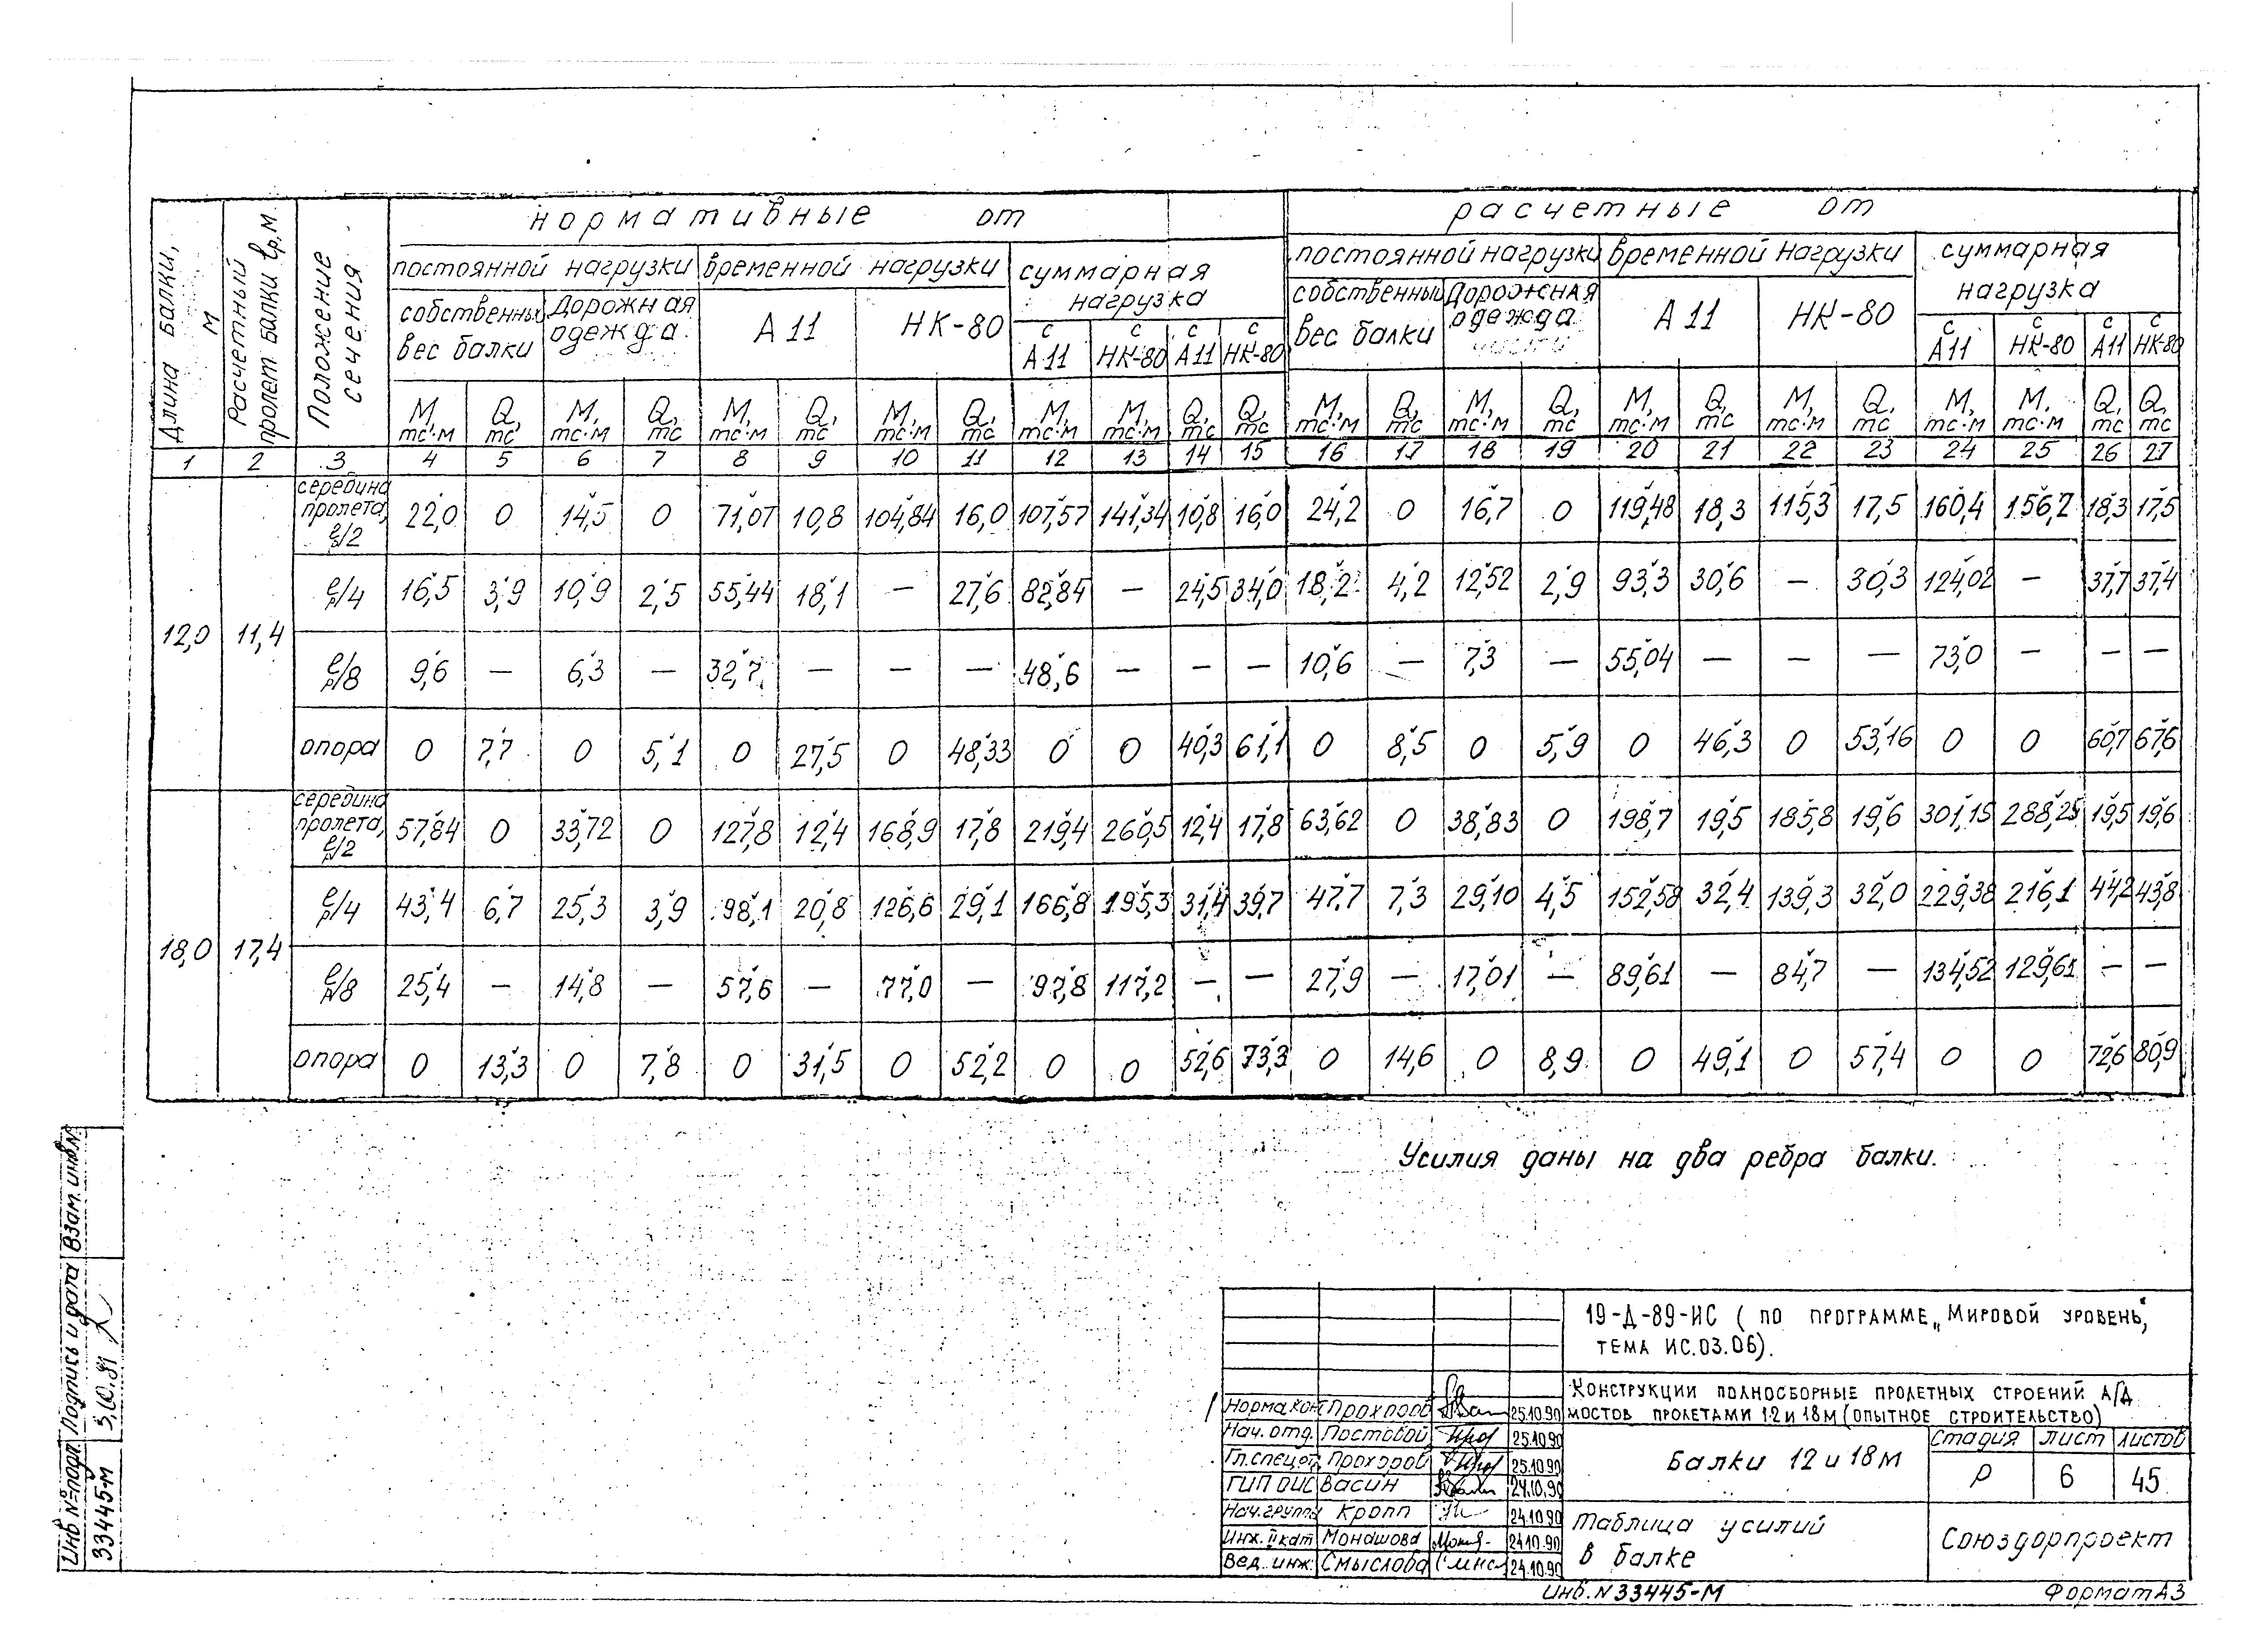 нормативные от расчетные от
Длина балки, м
Расчетный пролет балки lр, м.
Положение сечения
постоянной нагрузки временной нагрузки суммарная нагрузка постоянной нагрузки временной нагрузки суммарная нагрузка
собственный вес балки Дорожная одежда. А 11 НК-80 с А11 с НК-80 с А11 с НК-80 собственный вес балки Дорожная одежда А 11 НК-80 с А11 с НК-80 с А11 с НК-80
М, тс·м Q, тс М, тс·м Q, тс М, тс·м Q, тс М, тс·м Q, тс М, тс·м М, тс·м Q, тс Q, тс М, тс·м Q, тс М, тс·м Q, тс М, тс·м Q, тс М, тс·м Q, тс М, тс·м М, тс·м Q, тс Q, тс
1 2 3 4 5 6 7 8 9 10 11 12 13 14 15 16 17 18 19 20 21 22 23 24 25 26 27
12,0 11,4
середина пролета, lр/2 22,0 0 14,5 0 71,07 10,8 104,84 16,0 107,57 141,34 10,8 16,0 24,2 0 16,7 0 119,48 18,3 115,3 17,5 160,4 156,2 18,3 17,5
lр/4 16,5 3,9 10,9 2,5 55,44 18,1 — 27,6 82,84 — 24,5 34,0 18,2 4,2 12,52 2,9 93,3 30,6 — 30,3 124,02 — 37,7 37,4
lр/8 9,6 — 6,3 — 32,7 — — — 48,6 — — — 10,6 — 7,3 — 55,04 — — — 73,0 — — —
опора 0 7,7 0 5,1 0 27,5 0 48,33 0 0 40,3 61,1 0 8,5 0 5,9 0 46,3 0 53,16 0 0 60,7 67,6
18,0 17,4
середина пролета, lр/2 57,84 0 33,72 0 127,8 12,4 168,9 17,8 219,4 260,5 12,4 17,8 63,62 0 38,83 0 198,7 19,5 185,8 19,6 301,15 288,25 19,5 19,6
lр/4 43,4 6,7 25,3 3,9 98,1 20,8 126,6 29,1 166,8 195,3 31,4 39,7 47,7 7,3 29,10 4,5 152,58 32,4 139,3 32,0 229,38 216,1 44,2 43,8
lр/8 25,4 — 14,8 — 57,6 — 77,0 — 97,8 117,2 — — 27,9 — 17,01 — 89,61 — 84,7 — 134,52 129,61 — —
опора 0 13,3 0 7,8 0 31,5 0 52,2 0 0 52,6 73,3 0 14,6 0 8,9 0 49,1 0 57,4 0 0 72,6 80,9
Усилия даны на два ребра балки.
Инв № подл. Подпись и дата Взам. инв. №
33445-м 3.10.91
19-Д-89-ИС ( по программе „Мировой уровень",
тема ИС.03.06).
Конструкции полносборные пролетных строений а/д
мостов пролетами 12 и 18 м (опытное строительство)
Норма конт Прохоров 25.10.90
Нач. отд. Постовой 25.10.90
Гл. спец. от. Прохоров 25.10.90
ГИП ОИС Васин 24.10.90
Нач. группы Кропп 24.10.90
Инж. II кат Монашова 24.10.90
Вед. инж. Смыслова 24.10.90
Балки 12 и 18 м
Стадия лист листов
Р 6 45
Таблица усилий
в балке
Союздорпроект
Инв. N 33445-М Формат А3